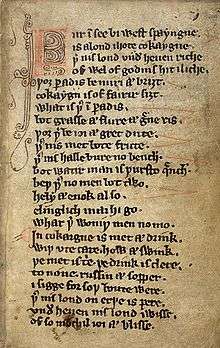 Fur in see bi west spayngne
is a lond ihote cokaygne
þ̓ nis lond vnd̓ heuen riche
of wel of godnis hit iliche
þoȝ paradis be miri ⁊ briȝt
cokaygn is of fairir siȝt
what is þ̓ in ꝑadis
bot grasse ⁊ flure ⁊ grene ris
þoȝ þ̓ be ioi ⁊ gret dute
þ̓ nis met bote frute
þ̓ nis halle bure no bench
bot watir man is þursto quēch
beþ þ̓ no men bot two
hely ⁊ enok also
elinglich mai hi go
whar þ̓ woniþ men no mo
In cokaigne is met ⁊ drink
wiþ vte care how ⁊ swink
þe met is trie þe drink is clere
to none russin ⁊ sopper
i sigge for soþ boute were
þ̓ nis lond on erþe is pere
vnd̓ heuen nis lond iwisse
of so mochil ioi ⁊ blisse